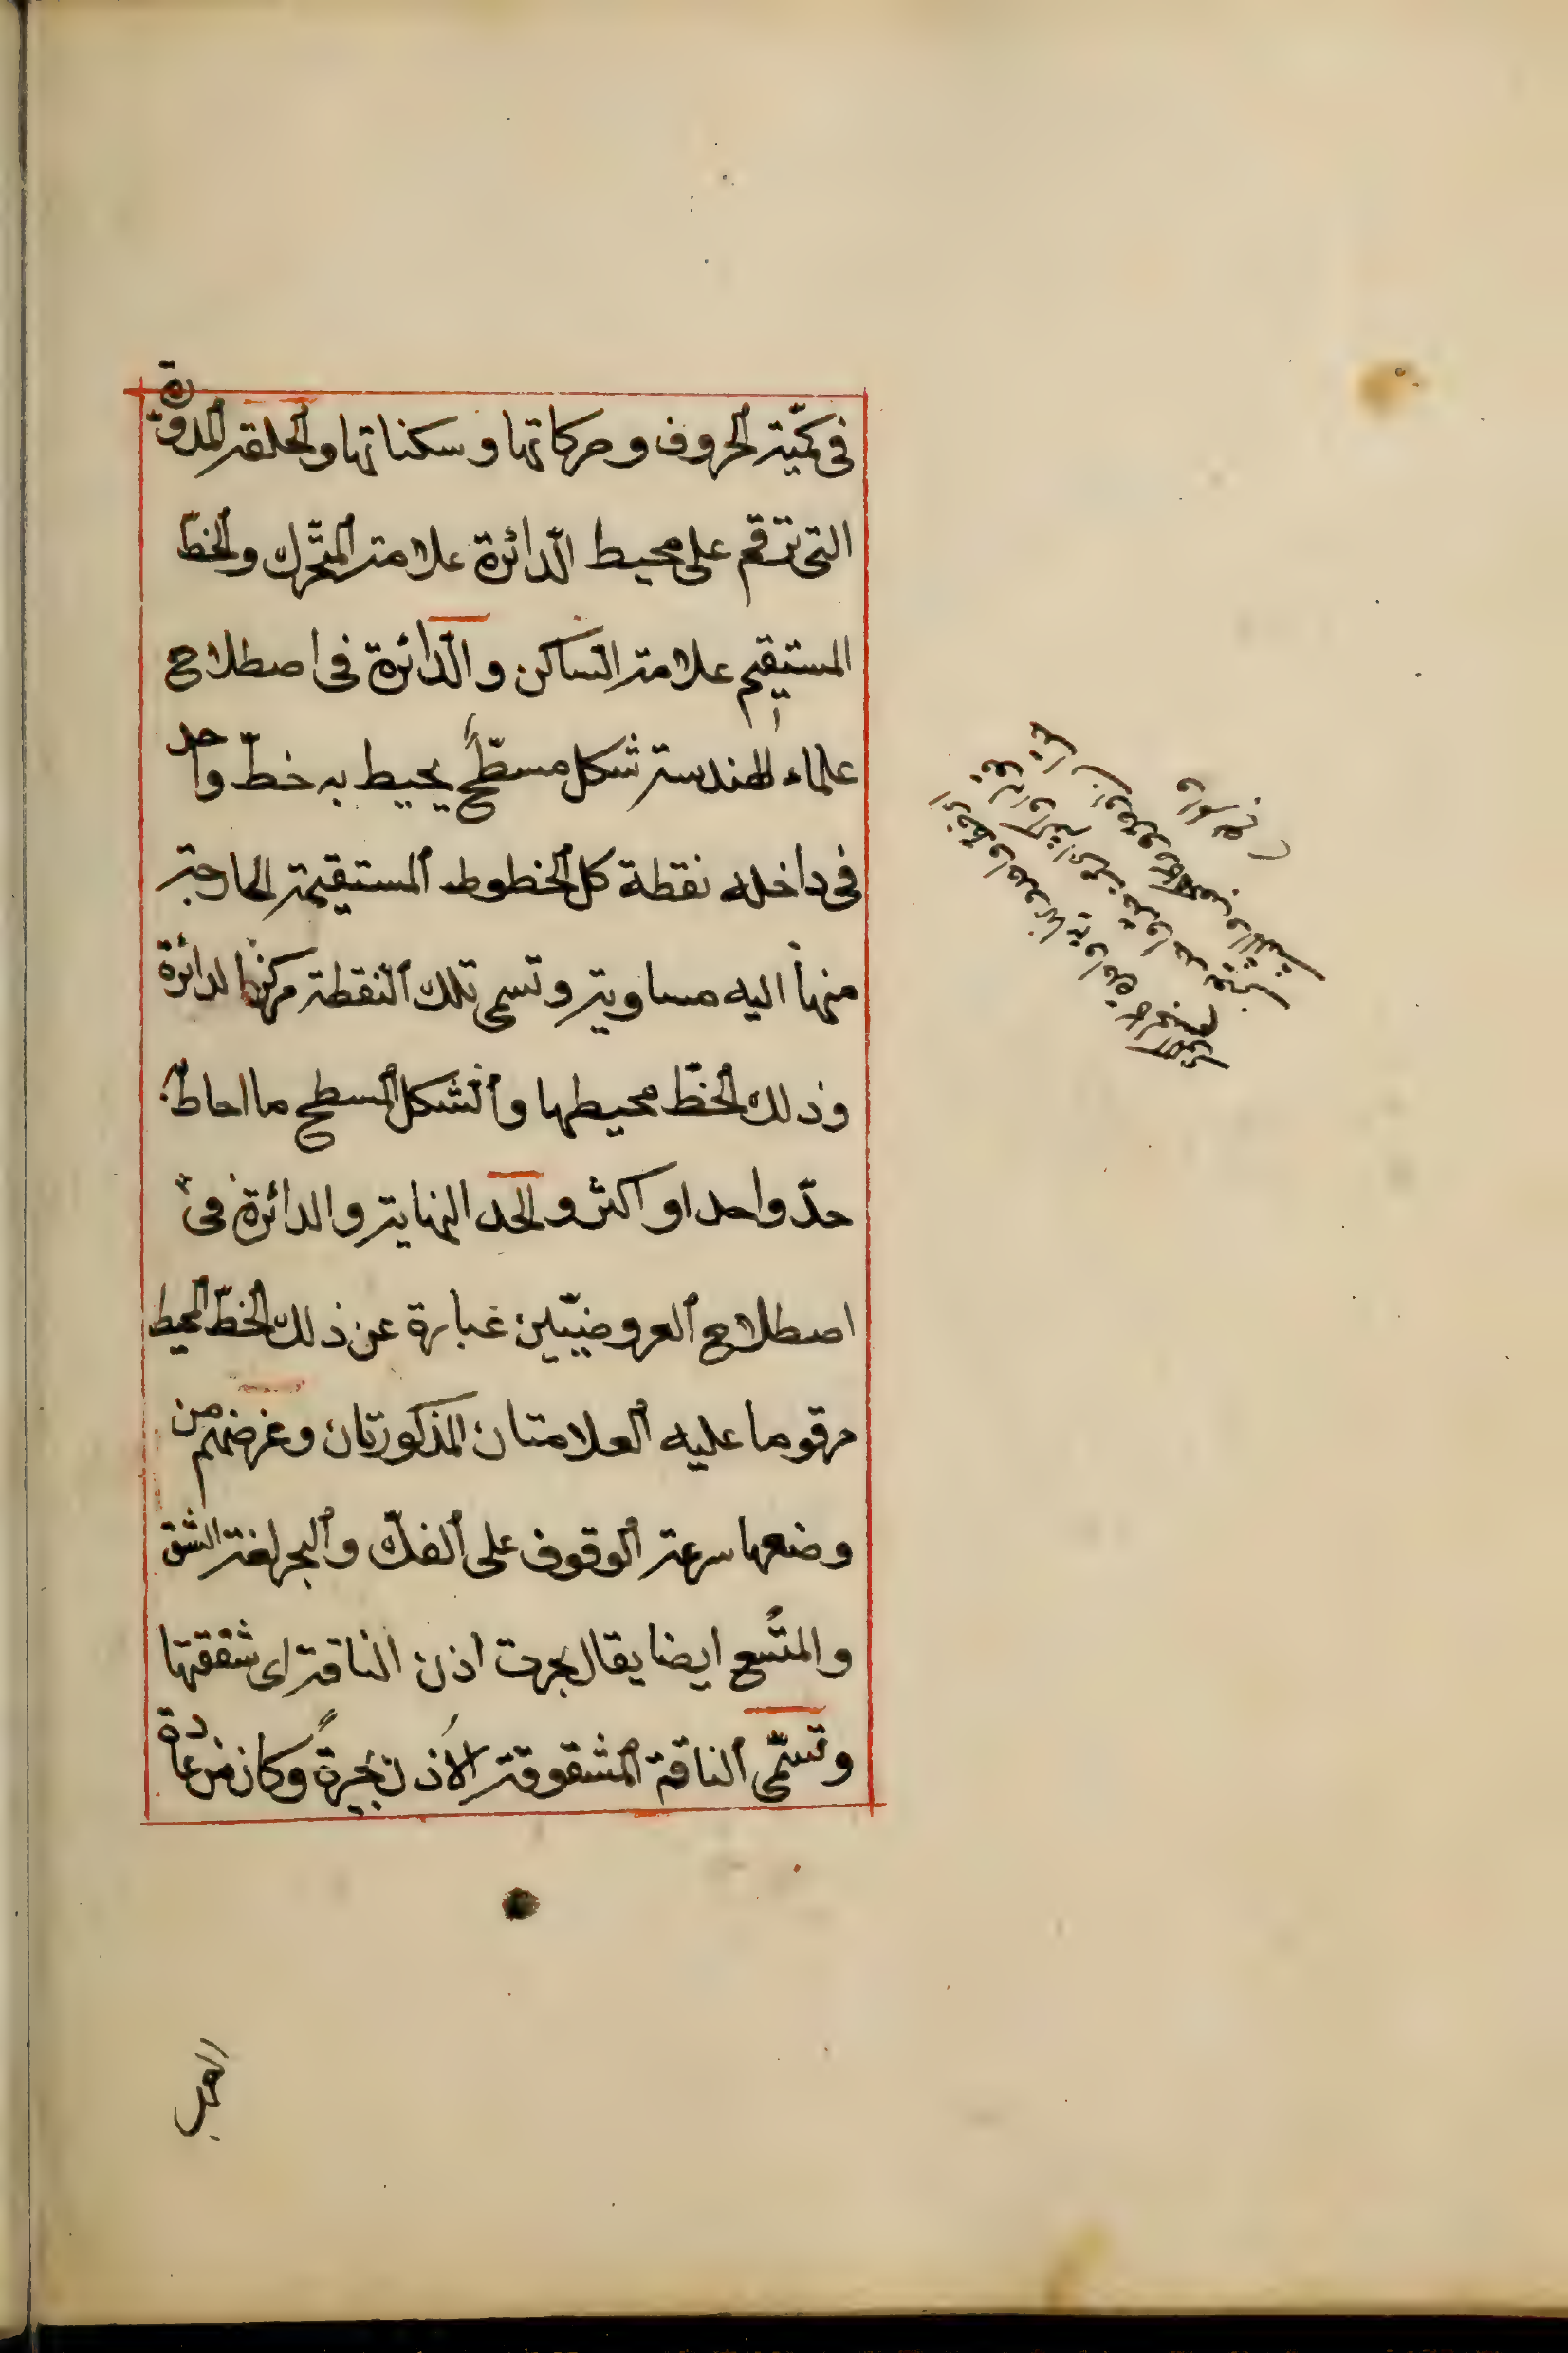 فى كمّيّة الحروف وحركاتها وسكناتها والحلقة المدوّرة
التى ترقم على محيط الدّائرة علامة المتحّرك والخطّ
المستقيم علامة السّاكن والدّائرة فى اصطلاح
علماء الهندسة شكل مسطّح يحيط به خطّ واحد
فى داخله نقطة كل الخطوط المستقيمة الخارجة
منها اليه مساوية وتسمى تلك النقطة مركزا لدائرة
وذلك الخطّ محيطها والشكل المسطح ما احاط به
حدّ واحد او اكثر والحد النهاية والدائرة فى
اصطلاح العروضيّين عبارة عن ذلك الخطّ المحيط
مرقوما عليه العلامتان المذكورتان وغرضهم من
وضعها سرعة الوقوف على الفكّ والبحر لغة الشق
والمتّسع ايضا يقال بحرت اذن الناقة اى شققتها
وتسمّى الناقة المشقوقة الاذن بحيرةً وكان من عادة
العرب